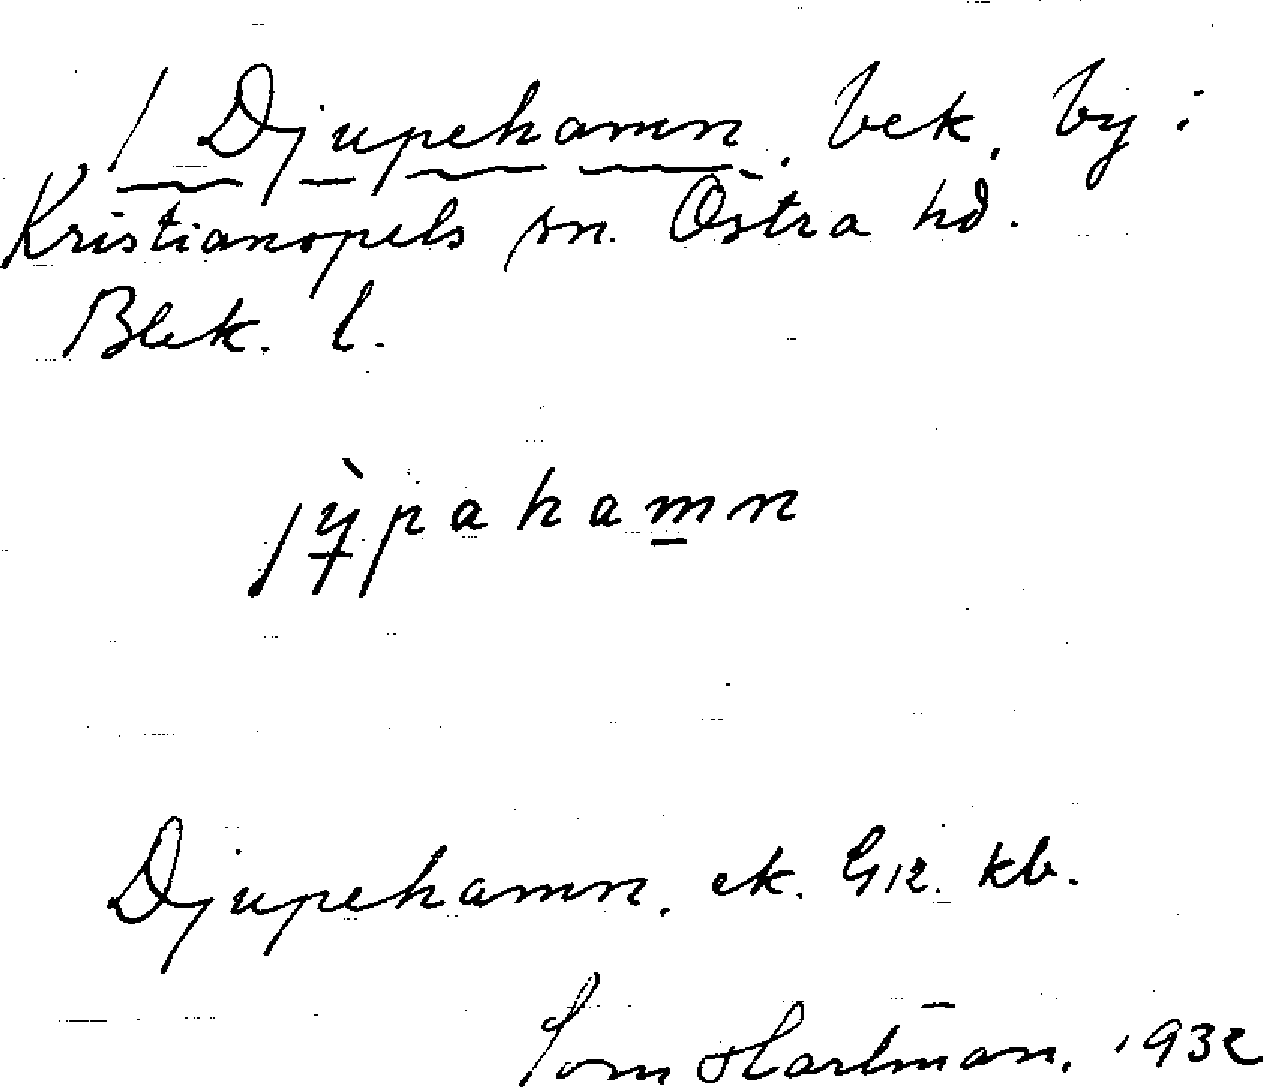 / Djupehamn, bek. by i
Kristianopels sn. Östra hd.
Blek. l.
jỳpahamn
Djupehamn. ek. G12. kb.
Tom Hartman. 1932